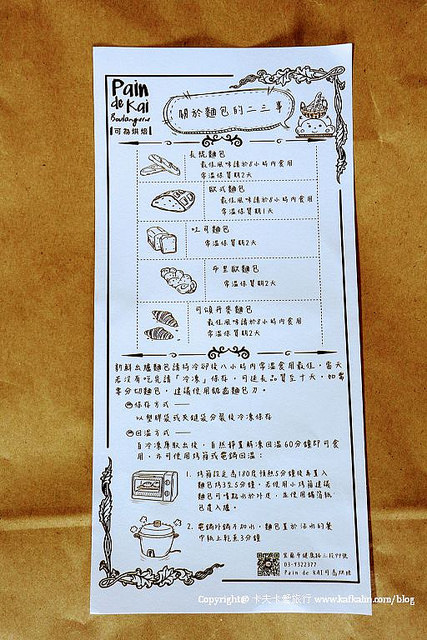 Pain
de Kai
Boulangerie
可為烘焙
關於麵包的二三事
長棍麵包
最佳風味請於8小時內食用
常溫保質期2天
歐式麵包
最佳風味請於8小時內食用
常溫保質期1天
吐司麵包
常溫保質期2天
布里歐麵包
常溫保質期2天
可頌丹麥麵包
最佳風味請於8小時內食用
常溫保質期2天
新鮮出爐麵包請待冷卻後八小時內常溫食用最佳，當天
若沒有吃完請「冷凍」保存，可延長品質至十天，如需
要分切麵包，建議使用鋸齒麵包刀。
保存方式
以塑膠袋或夾鏈袋分裝後冷凍保存
回溫方式
自冷凍庫取出後，自然靜置解凍回溫60分鐘即可食
用，亦可使用烤箱或電鍋回溫：
1. 烤箱設定為180度預熱5分鐘後再置入
麵包烤3至5分鐘，若使用小烤箱建議
麵包可噴點水於外皮，並使用鋁箔紙
包覆入爐。
2. 電鍋外鍋不加水，麵包置於沾水的餐
巾紙上乾蒸3分鐘
宜蘭市健康路三段99號
03-9322377
Pain de KAI可為烘焙
Copyright@ 卡夫卡愛旅行 www.kafkalin.com/blog